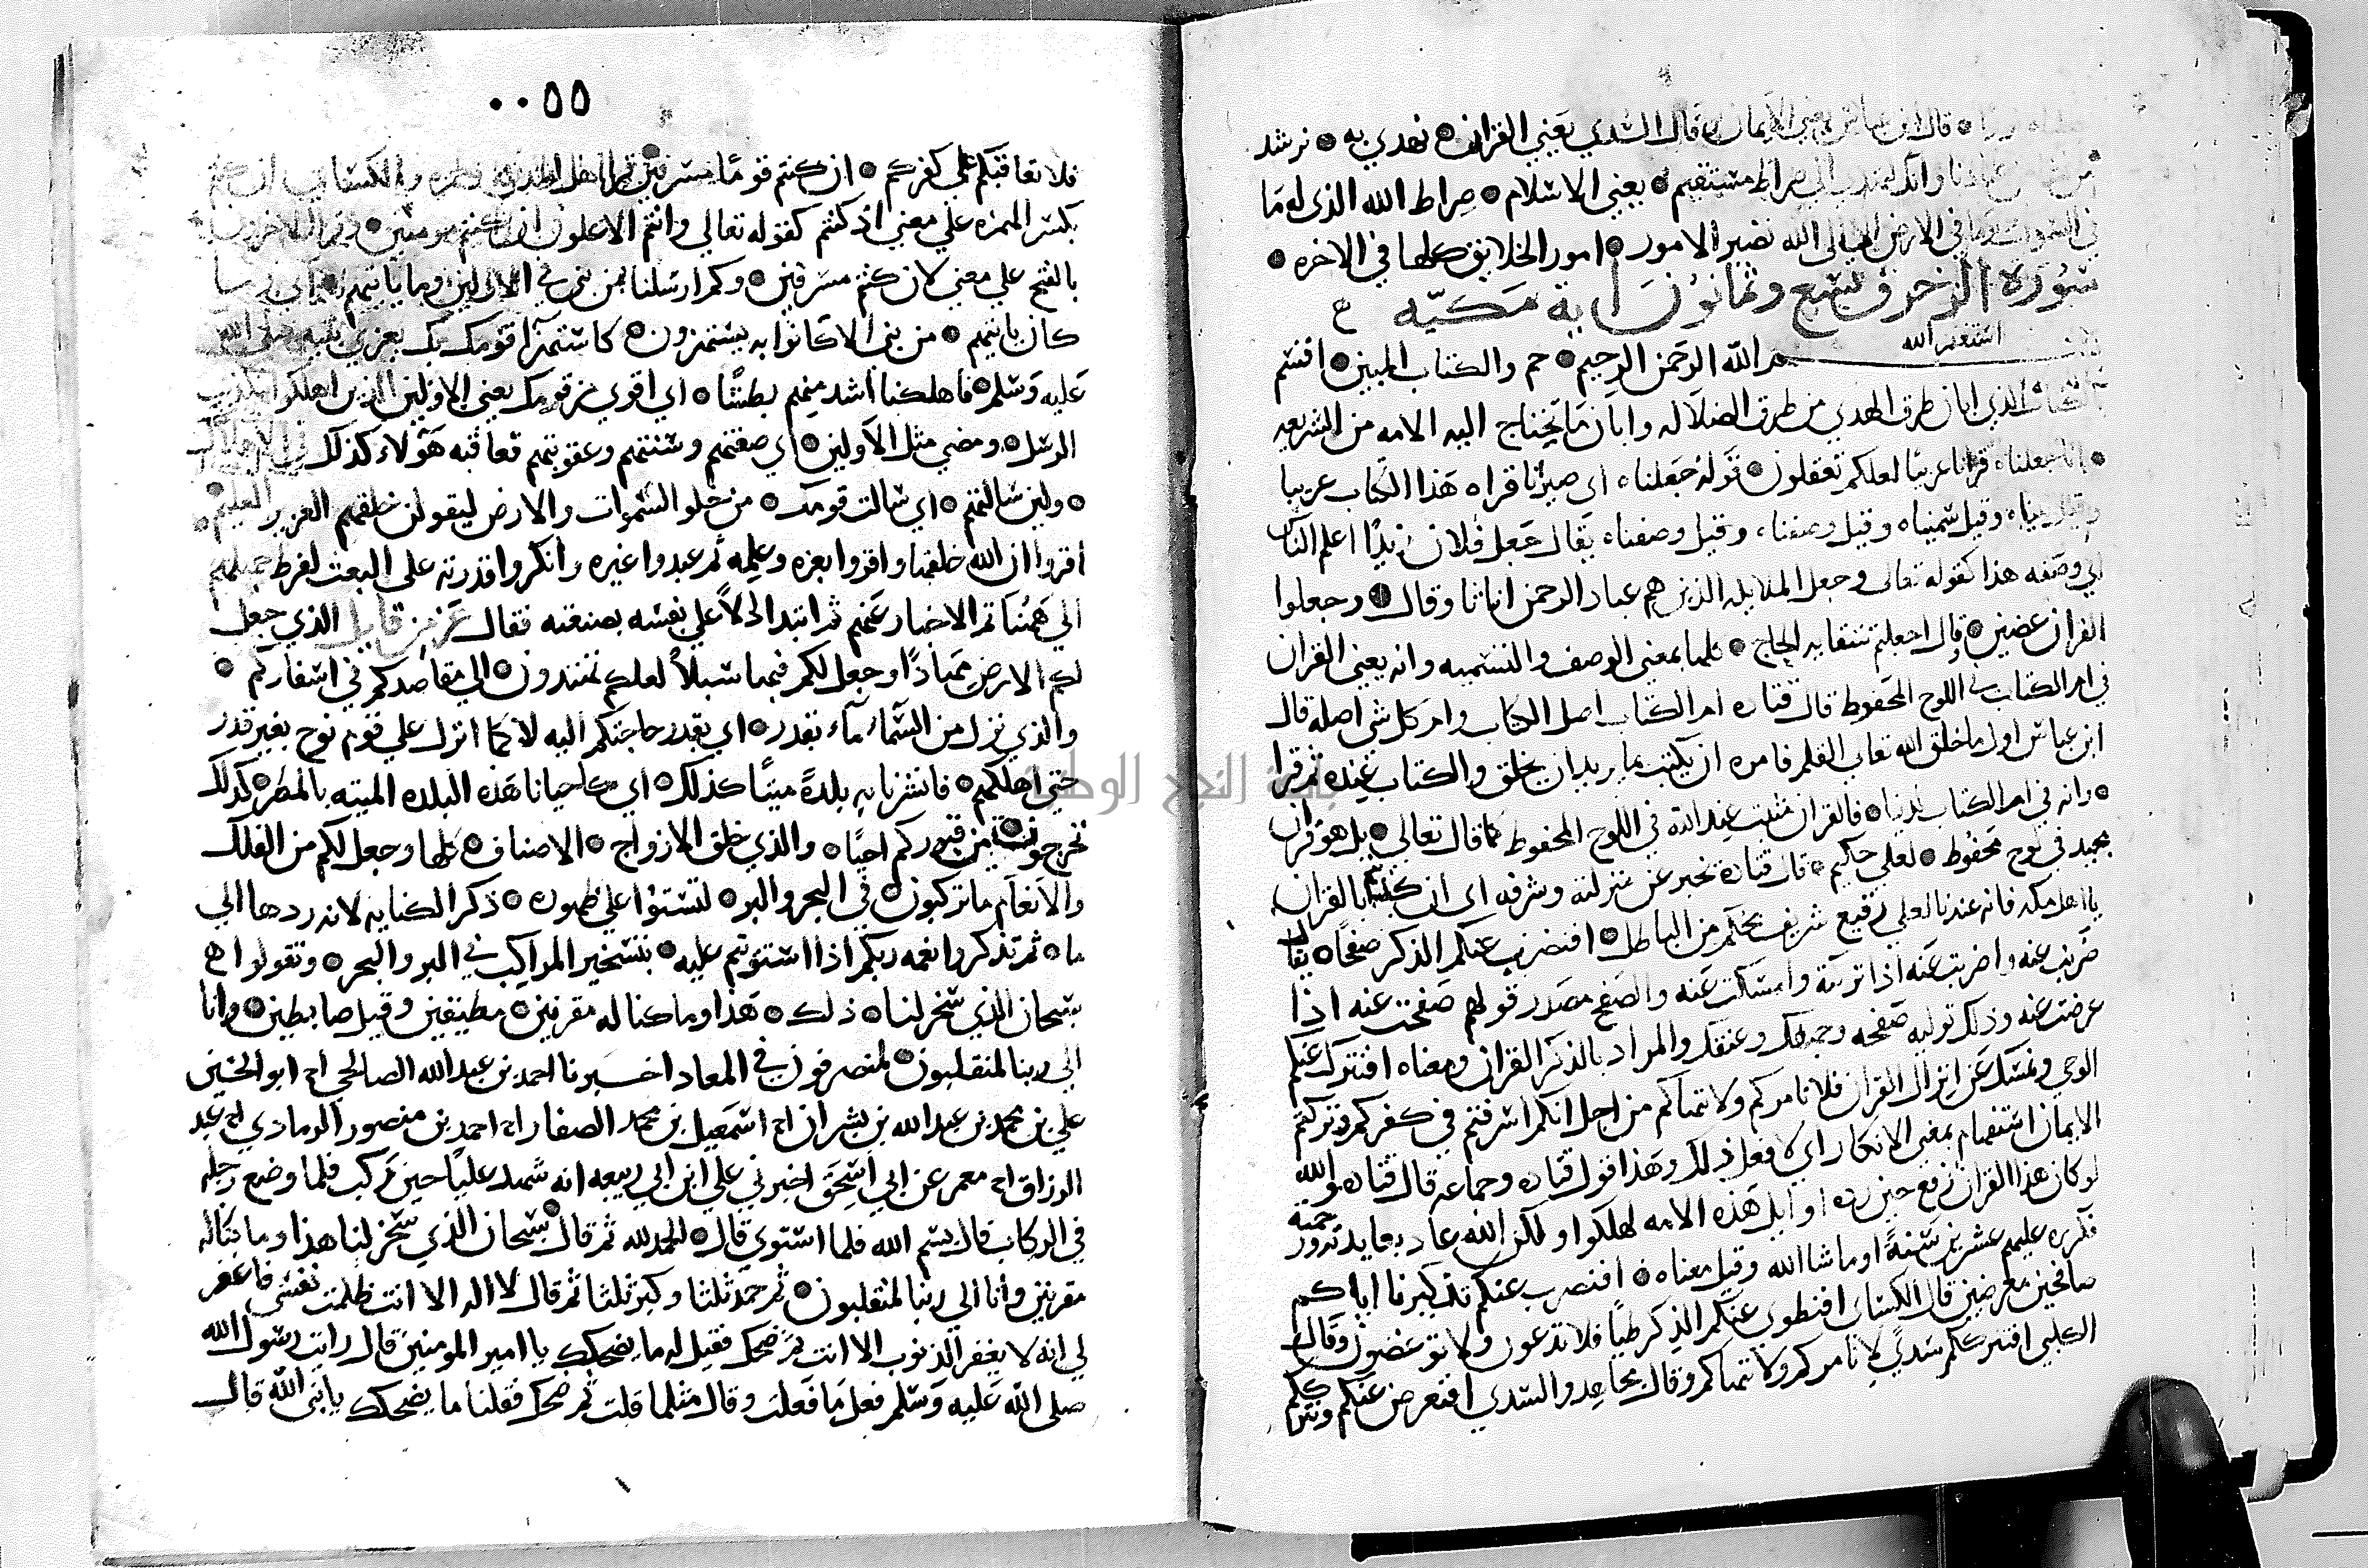 قال ابن عباس يعني الايمان قال السدي يعني القران نهدي به نرشد
من عبادنا وانك لتهدي الي صراط مستقيم يعني الاسلام صراط الله الذي له ما
في السموات وما في الارض الا الي الله تصير الامور امور الخلايق كلها في الاخره
سورة الزخرف تسع وثمانون اية مكيه
استغفر الله
الله الرحمن الرحيم حم والكتاب المبين اقسم
الذي ابان طرق الهدي من طرق الضلاله وابان ما تحتاج اليه الامه من الشريعه
انا جعلناه قرانا عربيا لعلكم تعقلون قوله جعلناه اي صيرنا قراه هذا الكتاب عربيا
وقيل بيناه وقيل سميناه وقيل وصفناه يقال جعل فلان زيدا اعلم الناس
اي وصفه هذا كقوله تعالي وجعلوا الملايكه الذين هم عباد الرحمن اناثا وقال وجعلوا
القران عضين وقال اجعلتم سقايه الحاج كلها بمعني الوصف والتسميه وانه يعني القران
في ام الكتاب في اللوح المحفوظ قال قتاده ام الكتاب اصل الكتاب وام كل شي اصله قال
ابن عباس اول ما خلق الله تعالي القلم فامره ان يكتب ما يريد ان يخلق والكتاب عنده ثم قرا
وانه في ام الكتاب لدينا فالقران مثبت عند الله في اللوح المحفوظ كما قال تعالي بل هو قران
مجيد في لوح محفوظ لعلي حكيم قال قتاده يخبر عن منزلته وشرفه اي ان كذبتم بالقران
يا اهل مكه فانه عندنا لعلي رفيع شريف محكم من الباطل افنضرب عنكم الذكر صفحا يقال
ضربت عنه واضربت عنه اذا تركته وامسكت عنه والصفح مصدر قولهم صفحت عنه اذا
عرضت عنه وذلك توليه صفحه وجهك وعنقك والمراد بالذكر القران ومعناه افنترك عنكم
الوحي ونمسك عن انزال القران فلا نامركم ولا ننهاكم من اجل انكم اسرفتم في كفركم وتركتم
الايمان استفهام بمعني الانكار اي لا نفعل ذلك وهذا قول قتاده وجماعه قال قتاده والله
لو كان هذا القران رفع حين رده اوايل هذه الامه لهلكوا ولكن الله عاد بعايدته ورحمته
فكرره عليهم عشرين سنة او ما شا الله وقيل معناه افنضرب عنكم تذكيرنا اياكم
صافحين معرضين قال الكساي افنطوي عنكم الذكر طيا فلا تدعون ولا توعضون وقال
الكلبي افنترككم سدي لا نامركم ولا ننهاكم وقال مجاهد والسدي افنعرض عنكم ونترككم
٠٠٥٥
فلا نعاقبكم علي كفركم ان كنتم قوما مسرفين قرا اهل المدينه وحمزه والكساي ان كنتم
بكسر الهمزه علي معني اذ كنتم كقوله تعالي وانتم الاعلون ان كنتم مومنين وقرا الاخرون
بالفتح علي معني لان كنتم مسرفين وكم ارسلنا من نبي في الاولين وما ياتيهم
كان ياتيهم من نبي الا كانوا به يستهزون كاستهزا قومك بك يعزي نبيه صلي الله
عليه وسلم فاهلكنا اشد منهم بطشا اي اقوي من قومك يعني الاولين الذين اهلكوا بتكذيب
الرسل ومضي مثل الاولين اي صفتهم وسنتهم وعقوبتهم فعاقبه هؤلاء كذلك في الاهلاك
ولين سالتهم اي سالت قومك من خلق السموات والارض ليقولن خلقهم العزيز العليم
اقروا ان الله خلقها واقروا بعزه وعلمه ثم عبدوا غيره وانكروا قدرته علي البعث لفرط جهلهم
الي ههنا تم الاخبار عنهم ثم ابتدا دالا علي نفسه بصنعته فقال عز من قايل الذي جعل
لكم الارض مهادا وجعل لكم فيها سبلا لعلكم تهتدون الي مقاصدكم في اسفاركم
والذي نزل من السماء ماء بقدر اي بقدر حاجتكم اليه لا كما انزل علي قوم نوح بغير قدر
حتي اهلكهم فانشرنا به بلدة ميتا كذلك اي كما احيانا هذه البلده الميته بالمطر كذلك
تخرجون من قبوركم احيا والذي خلق الازواج الاصناف كلها وجعل لكم من الفلك
والانعام ما تركبون في البحر والبر لتستوا علي ظهوره ذكر الكنايه لانه ردها الي
ما ثم تذكروا نعمه ربكم اذا استويتم عليه بتسخير المراكب في البر والبحر وتقولوا
سبحان الذي سخر لنا ذلك هذا وما كنا له مقرنين مطيقين وقيل ضابطين وانا
الي ربنا لمنقلبون لمنصرفون في المعاد اخبرنا احمد بن عبد الله الصالحي انا ابو الحسين
علي بن محمد بن عبد الله بن بشران انا اسمعيل بن محمد الصفار انا احمد بن منصور الرمادي انا عبد
الرزاق انا معمر عن ابي اسحق اخبرني علي ابن ابي ربيعه انه شهد عليا حين ركب فلما وضع رجله
في الركاب قال بسم الله فلما استوي قال الحمد لله ثم قال سبحان الذي سخر لنا هذا وما كنا له
مقرنين وانا الي ربنا لمنقلبون ثم حمد ثلثا وكبر ثلثا ثم قال لا اله الا انت ظلمت نفسي فاغفر
لي انه لا يغفر الذنوب الا انت ثم ضحك فقيل له ما يضحكك يا امير المومنين قال رايت رسول الله
صلي الله عليه وسلم فعل ما فعلت وقال مثلما قلت ثم ضحك فقلنا ما يضحكك يا نبي الله قال